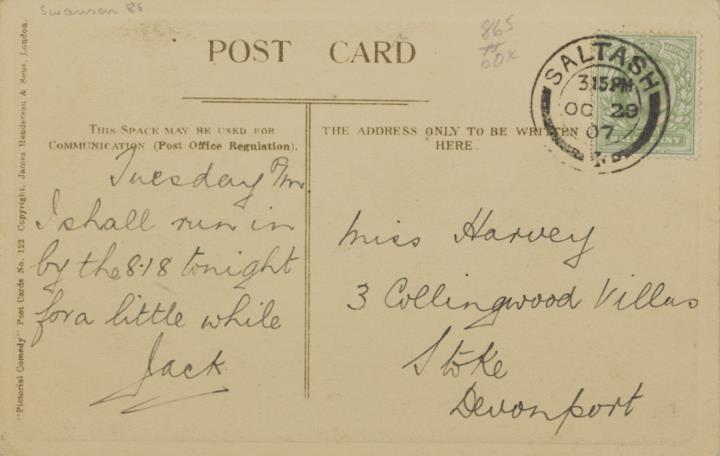 Swanson 86
865
60x
POST CARD
SALTASH
3.15 PM
OC 29
07
HALFPENNY
THIS SPACE MAY BE USED FOR
COMMUNICATION (Post Office Regulation).
THE ADDRESS ONLY TO BE WRITTEN
HERE.
Tuesday P/m
I shall run in
by the 8.18 tonight
for a little while
Jack
Miss Harvey
3 Collingwood Villas
Stoke
Devonport
"Pictorial Comedy" Post Cards No. 122 Copyright, James Henderson & Sons, London.